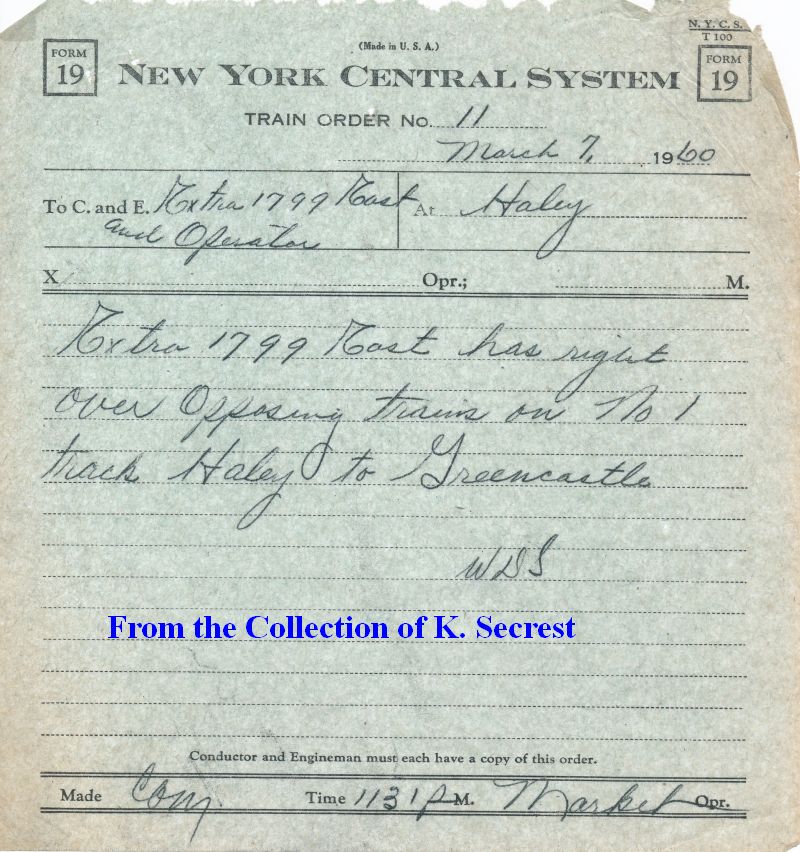 N. Y. C. S.
T 100
(Made in U. S. A.)
FORM
19
NEW YORK CENTRAL SYSTEM
FORM
19
TRAIN ORDER No. 11
March 7, 1960
To C. and E. Extra 1799 East At Haley
and Operator
X Opr.; M.
Extra 1799 East has right
over Opposing trains on No 1
track Haley to Greencastle
WDS
From the Collection of K. Secrest
Conductor and Engineman must each have a copy of this order.
Made Com Time 1131 P M. Market Opr.